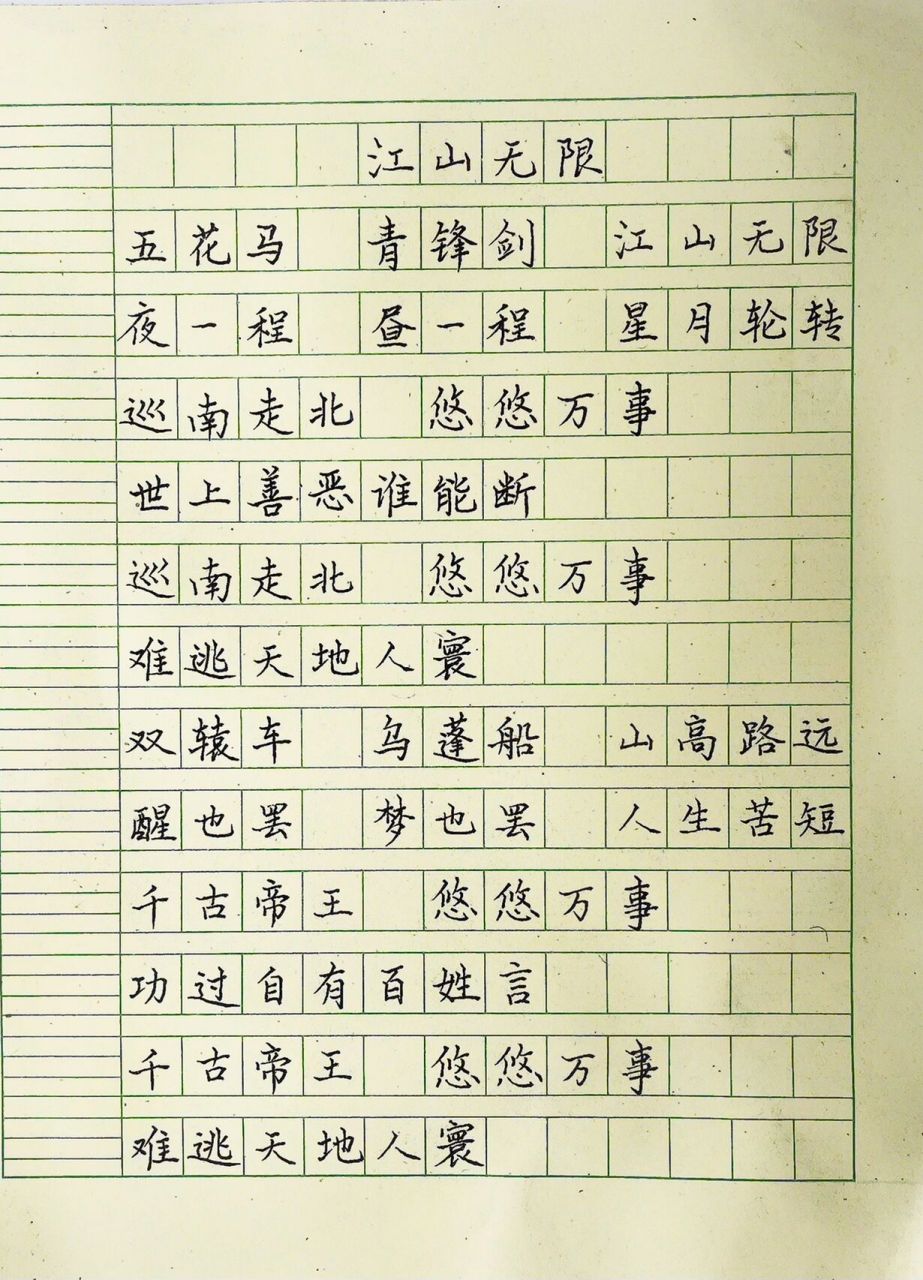 江山无限
五花马 青锋剑 江山无限
夜一程 昼一程 星月轮转
巡南走北 悠悠万事
世上善恶谁能断
巡南走北 悠悠万事
难逃天地人寰
双辕车 乌蓬船 山高路远
醒也罢 梦也罢 人生苦短
千古帝王 悠悠万事
功过自有百姓言
千古帝王 悠悠万事
难逃天地人寰